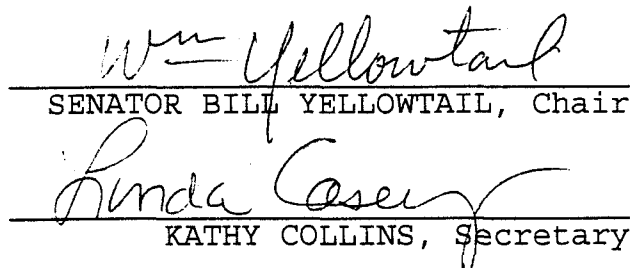 Wm Yellowtail
SENATOR BILL YELLOWTAIL, Chair
Linda Casey
KATHY COLLINS, Secretary